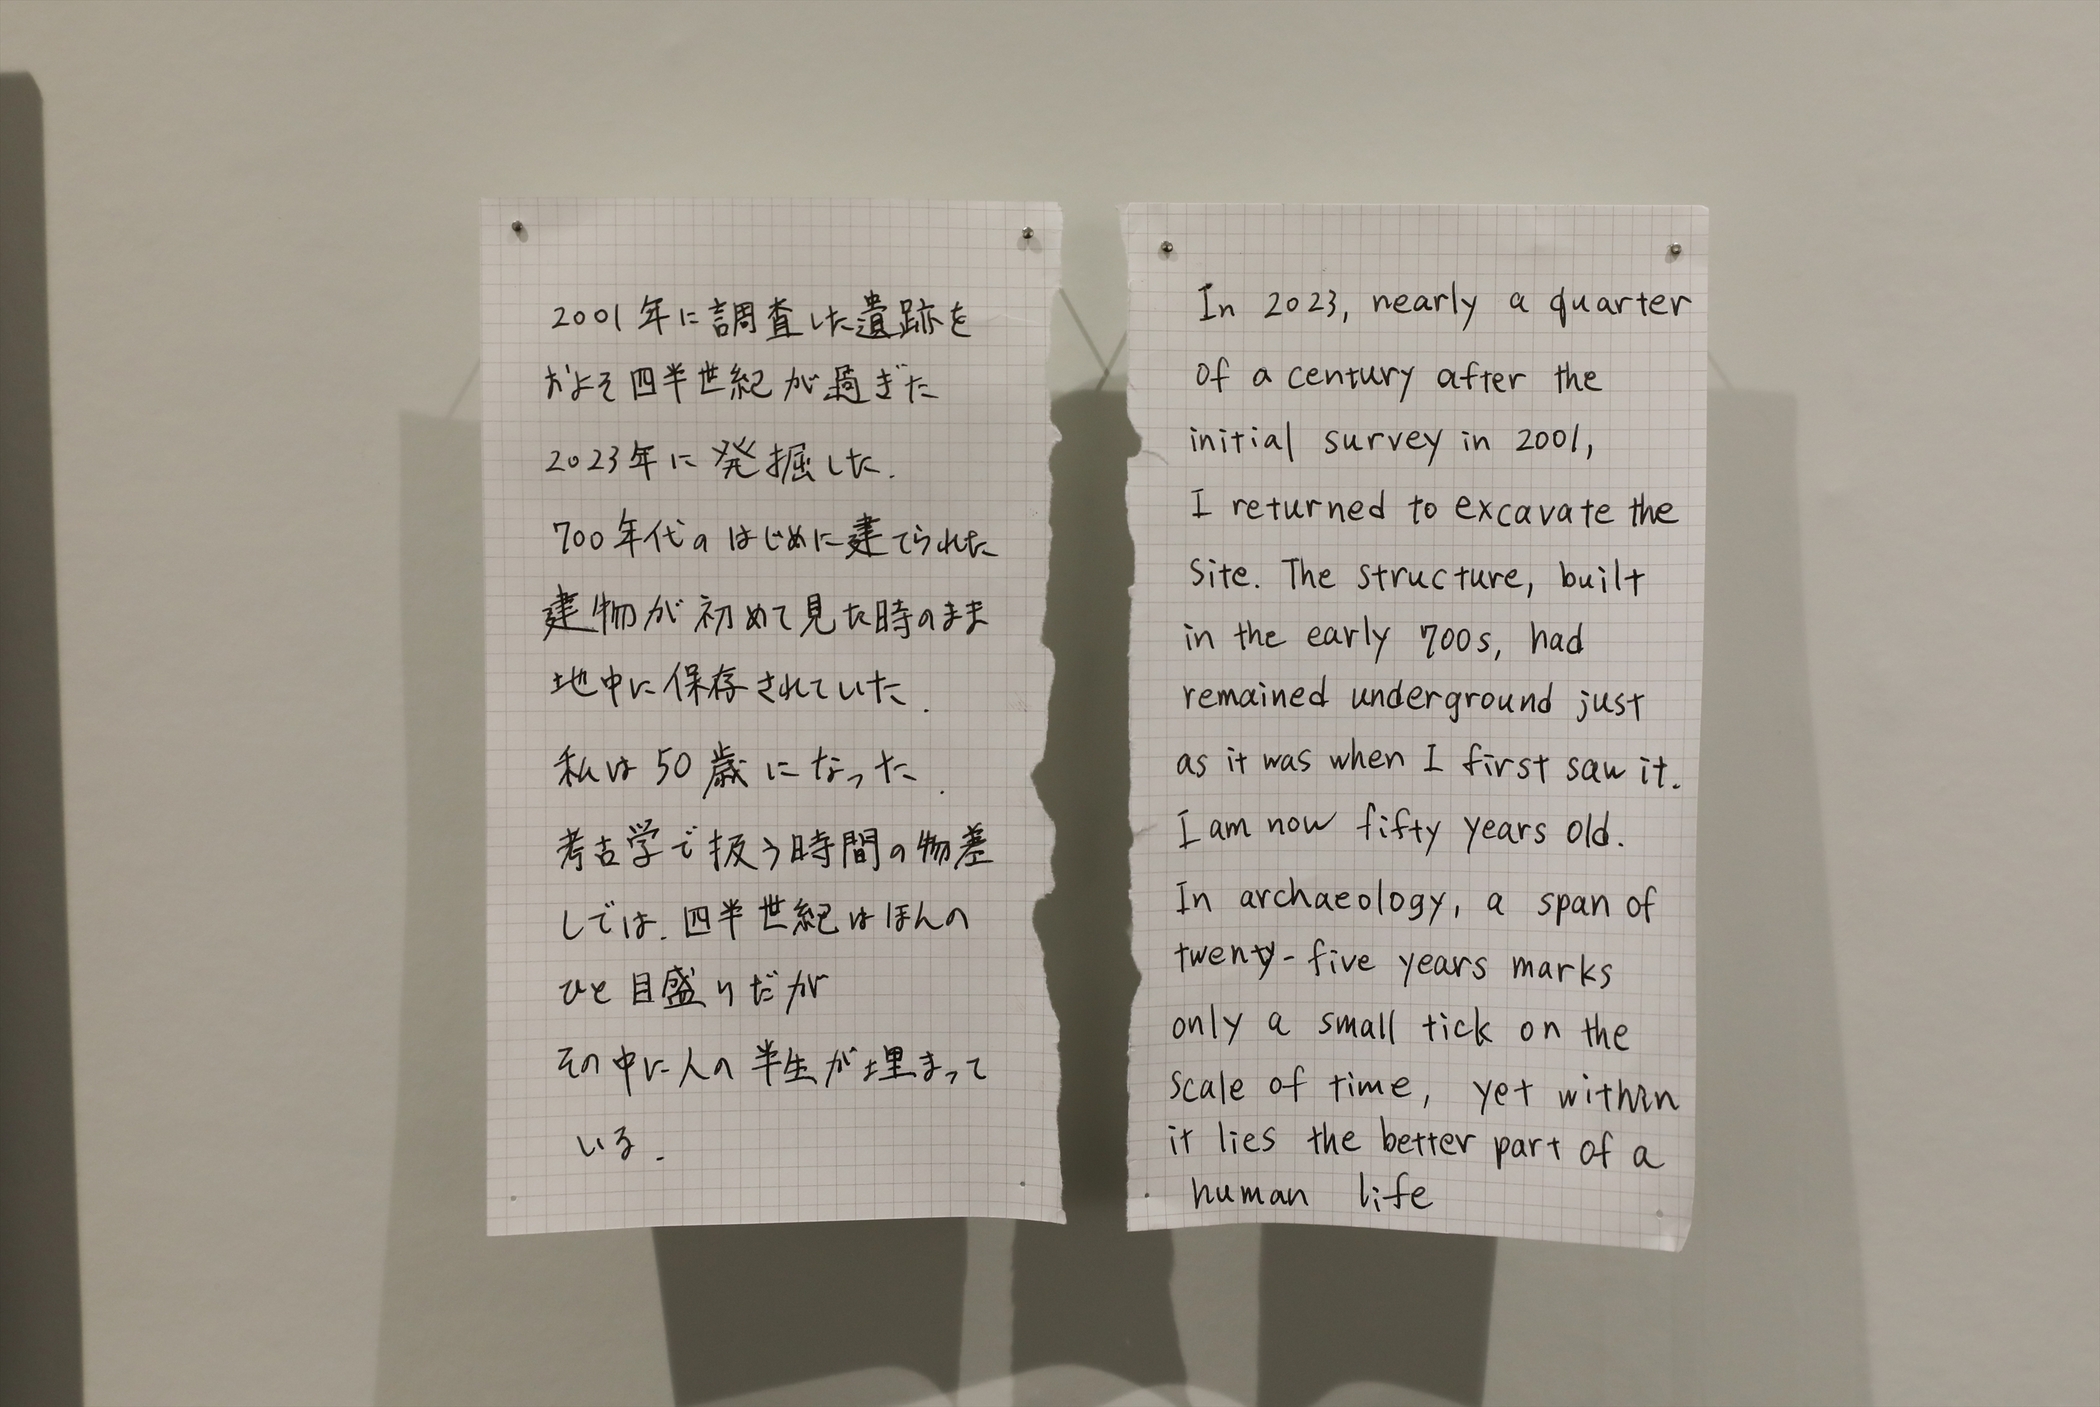 2001年に調査した遺跡を
およそ四半世紀が過ぎた
2023年に発掘した.
700年代のはじめに建てられた
建物が初めて見た時のまま
地中に保存されていた.
私は50歳になった.
考古学で扱う時間の物差
しでは.四半世紀はほんの
ひと目盛りだが
その中に人の半生が埋まって
いる.
In 2023, nearly a quarter
of a century after the
initial survey in 2001,
I returned to excavate the
site. The structure, built
in the early 700s, had
remained underground just
as it was when I first saw it.
I am now fifty years old.
In archaeology, a span of
twenty-five years marks
only a small tick on the
scale of time, yet within
it lies the better part of a
human life